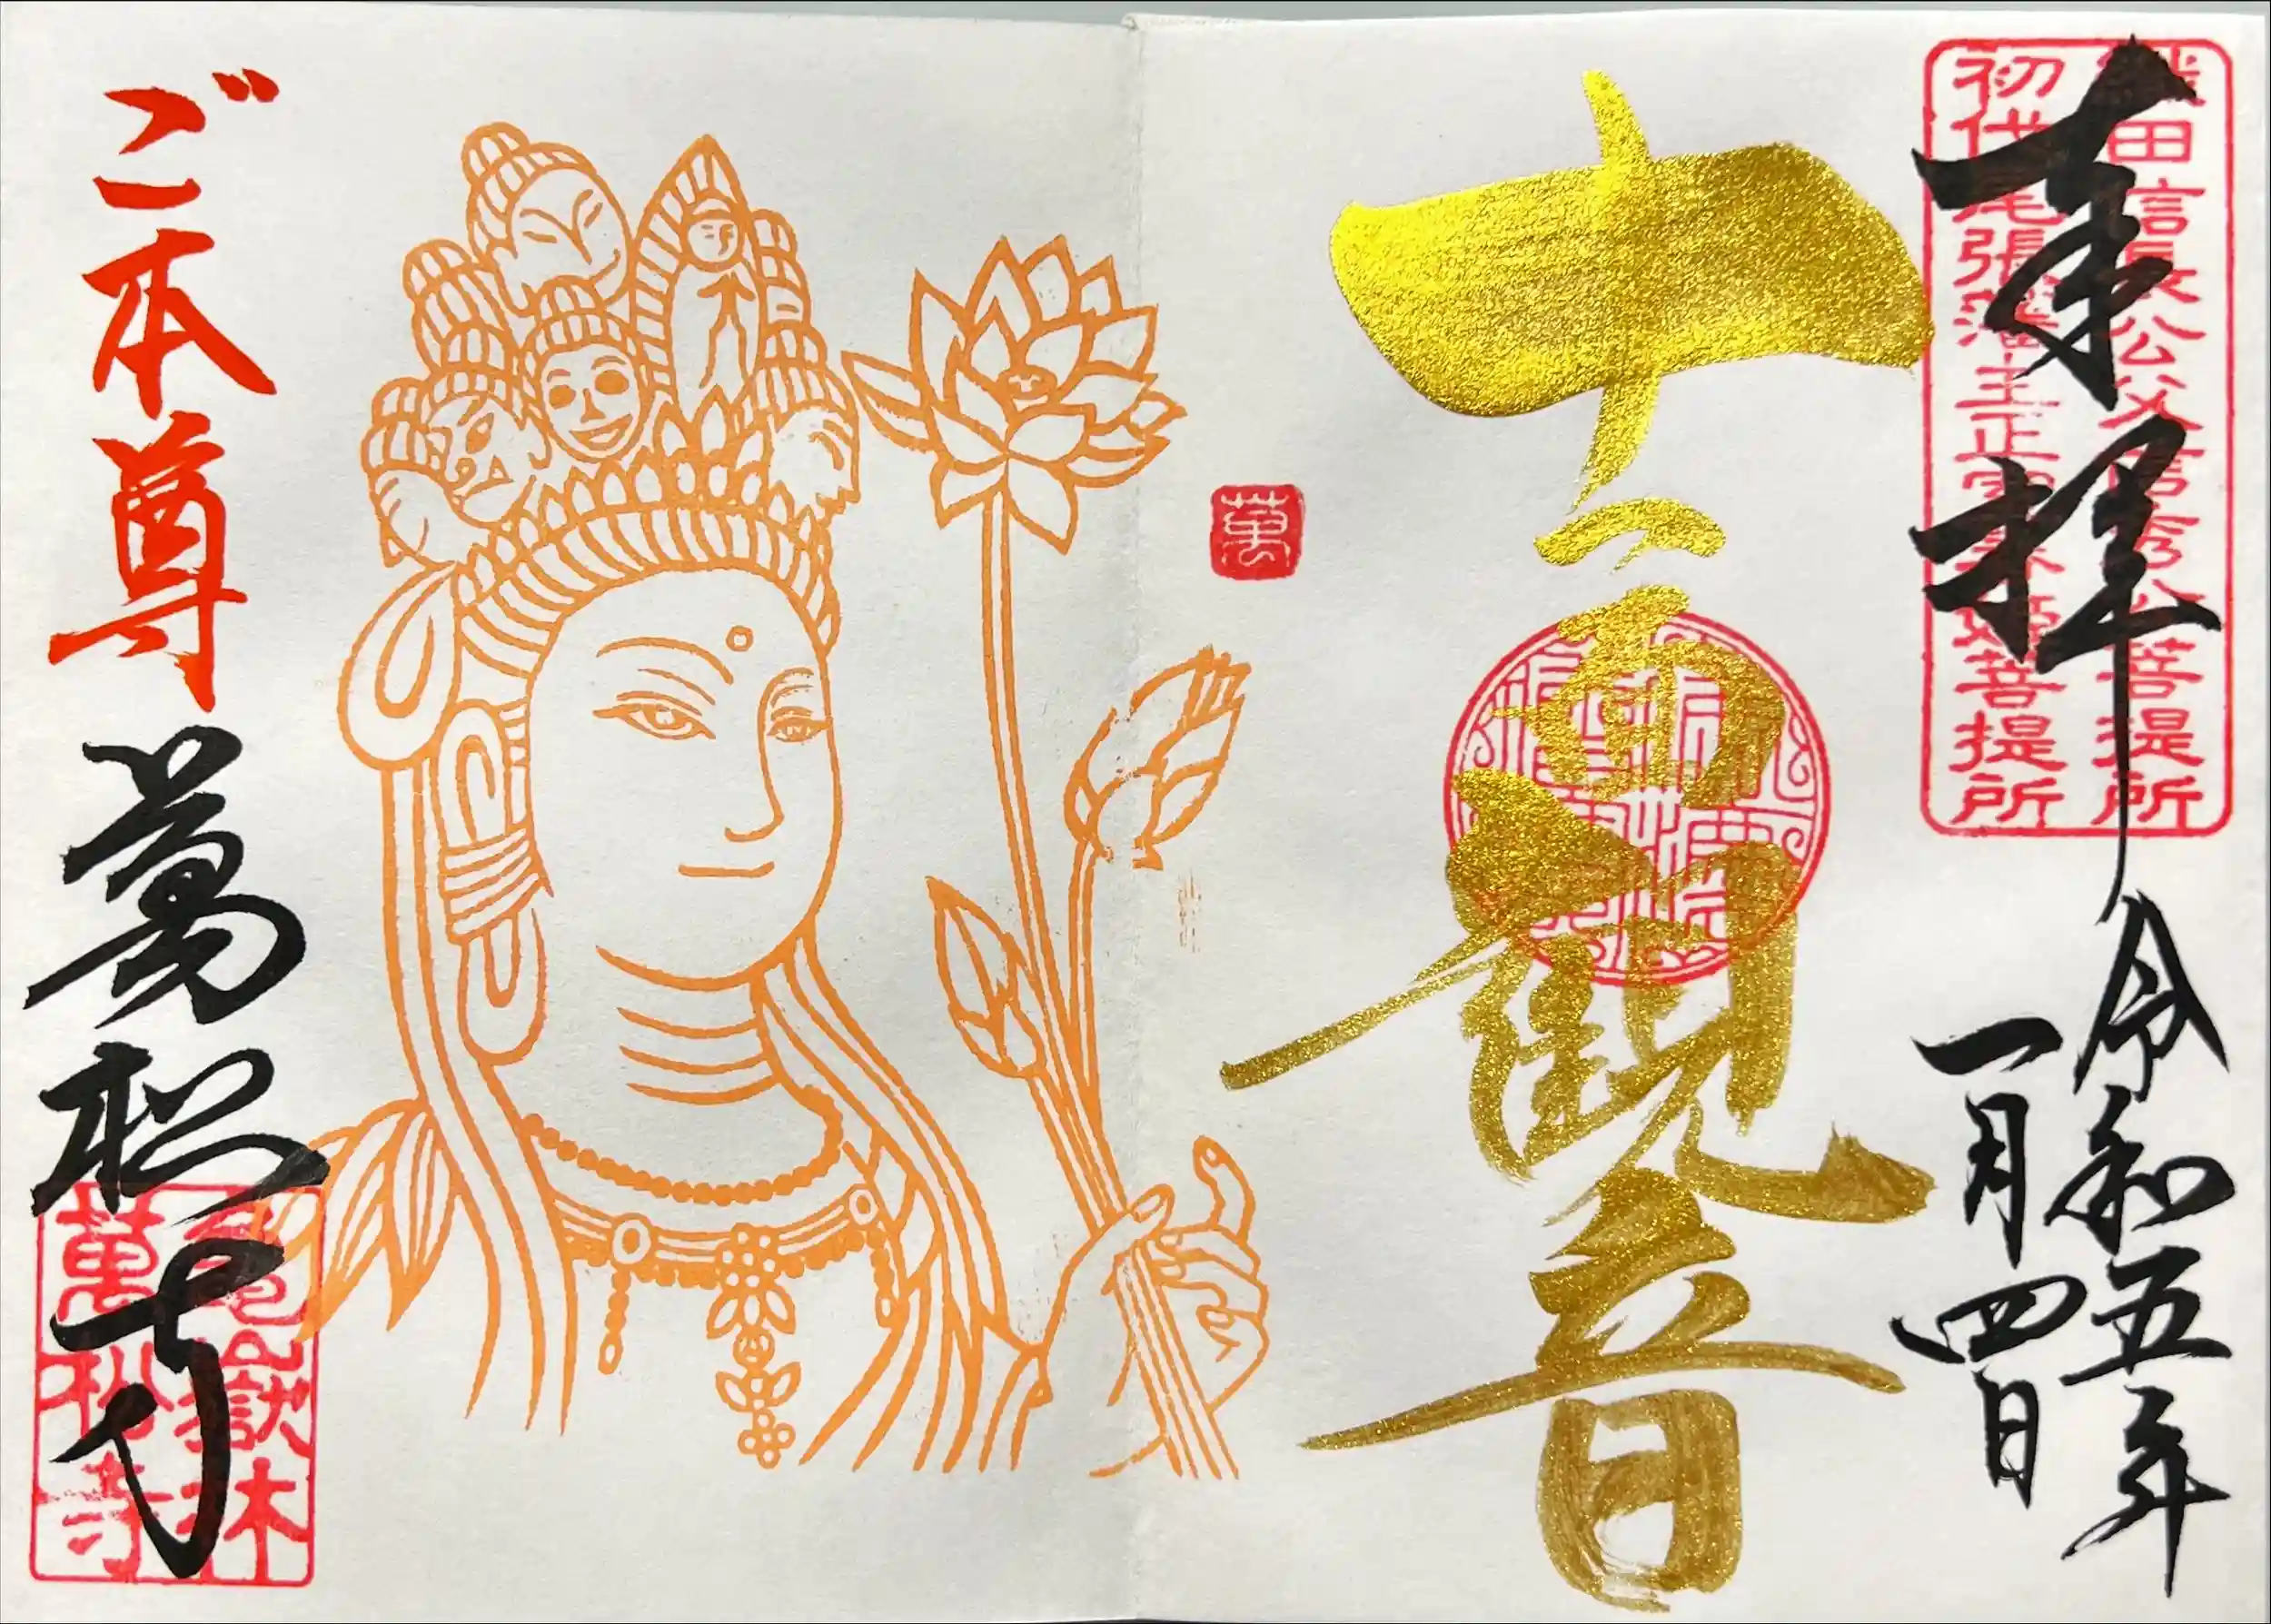 奉拝
織田信長公父信秀公菩提所
初代尾張藩主正室春姫菩提所
令和五年
一月四日
十一面観音
萬
ご本尊
萬松寺
亀嶽林
萬松寺